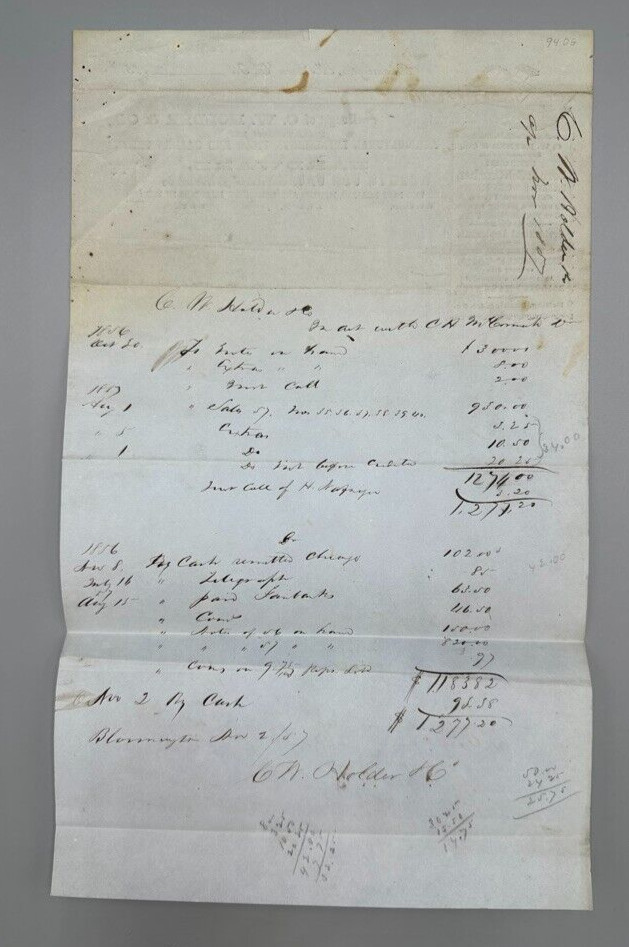 94.06
C. W. Holder &
Nov 1857
C. W. Holder & Co
In act with C H McCormick Dr
1856
Oct 30 To Notes on hand 130.00
" Extras " " 5.00
" " Call 2.00
1857
Aug 1 " Sales 57. Nos 35 36 37 38 39 40. 950.00
" 5 Extras 5.25
" 1 Do 10.50
Do before Credited 20.25
24.00
1274.00
Call of H 3.20
1,277.20
Cr
1856
Nov 8. By Cash remitted Chicago 102.00
July 16 " Telegraph .85
57
Aug 15 " paid Fairbanks 63.50
" Com 46.50
" Notes of 56 on hand 150.00
" " " 57 " " 820.00
" Coms on Reprs Sold 97
42.00
$ 1183.82
Nov 2 By Cash 93.38
$ 1277.20
Bloomington Nov 2/57
C W. Holder & Co
50.00
24.25
25.75
30.25
15.50
14.75